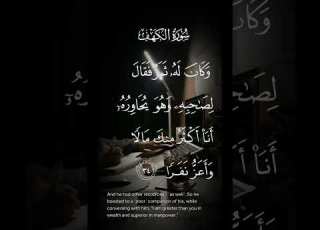 سُورَةُ الكَهْفِ
وَكَانَ لَهُۥ ثَمَرٌ فَقَالَ
لِصَٰحِبِهِۦ وَهُوَ يُحَاوِرُهُۥٓ
أَنَا۠ أَكْثَرُ مِنكَ مَالًا
وَأَعَزُّ نَفَرًا ٣٤
And he had other resources as well. So he
boasted to a poor companion of his, while
conversing with him, "I am greater than you in
wealth and superior in manpower."